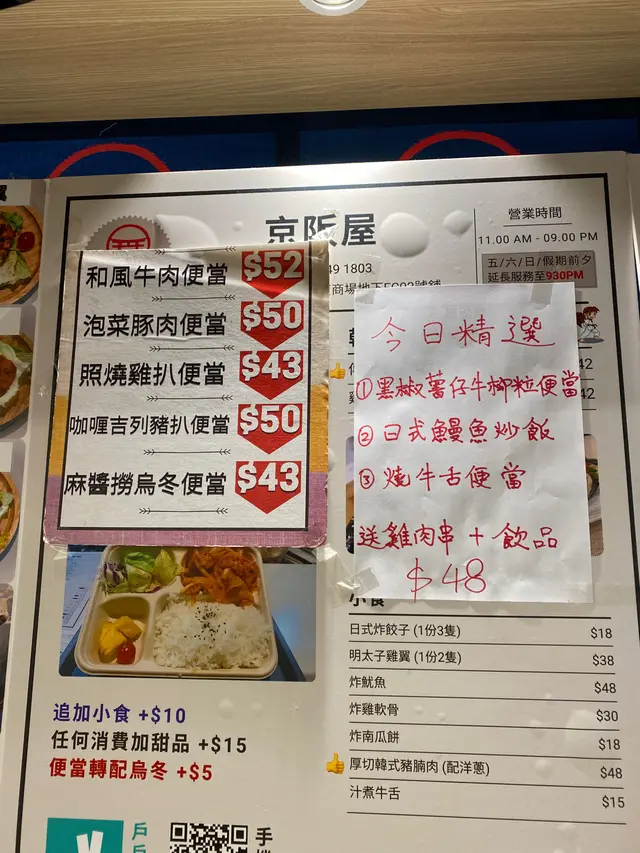 京阪屋
營業時間
11.00 AM - 09.00 PM
五/六/日/假期前夕
延長服務至930PM
49 1803
和風牛肉便當 $52
泡菜豚肉便當 $50
照燒雞扒便當 $43
咖喱吉列豬扒便當 $50
麻醬撈烏冬便當 $43
今日精選
①黑椒薯仔牛柳粒便當
②日式鰻魚炒飯
③燒牛舌便當
送雞肉串 + 飲品
$48
42
42
小食
日式炸餃子 (1份3隻) $18
明太子雞翼 (1份2隻) $38
炸魷魚 $48
炸雞軟骨 $30
炸南瓜餅 $18
厚切韓式豬腩肉 (配洋蔥) $48
汁煮牛舌 $15
追加小食 +$10
任何消費加甜品 +$15
便當轉配烏冬 +$5
戶
手